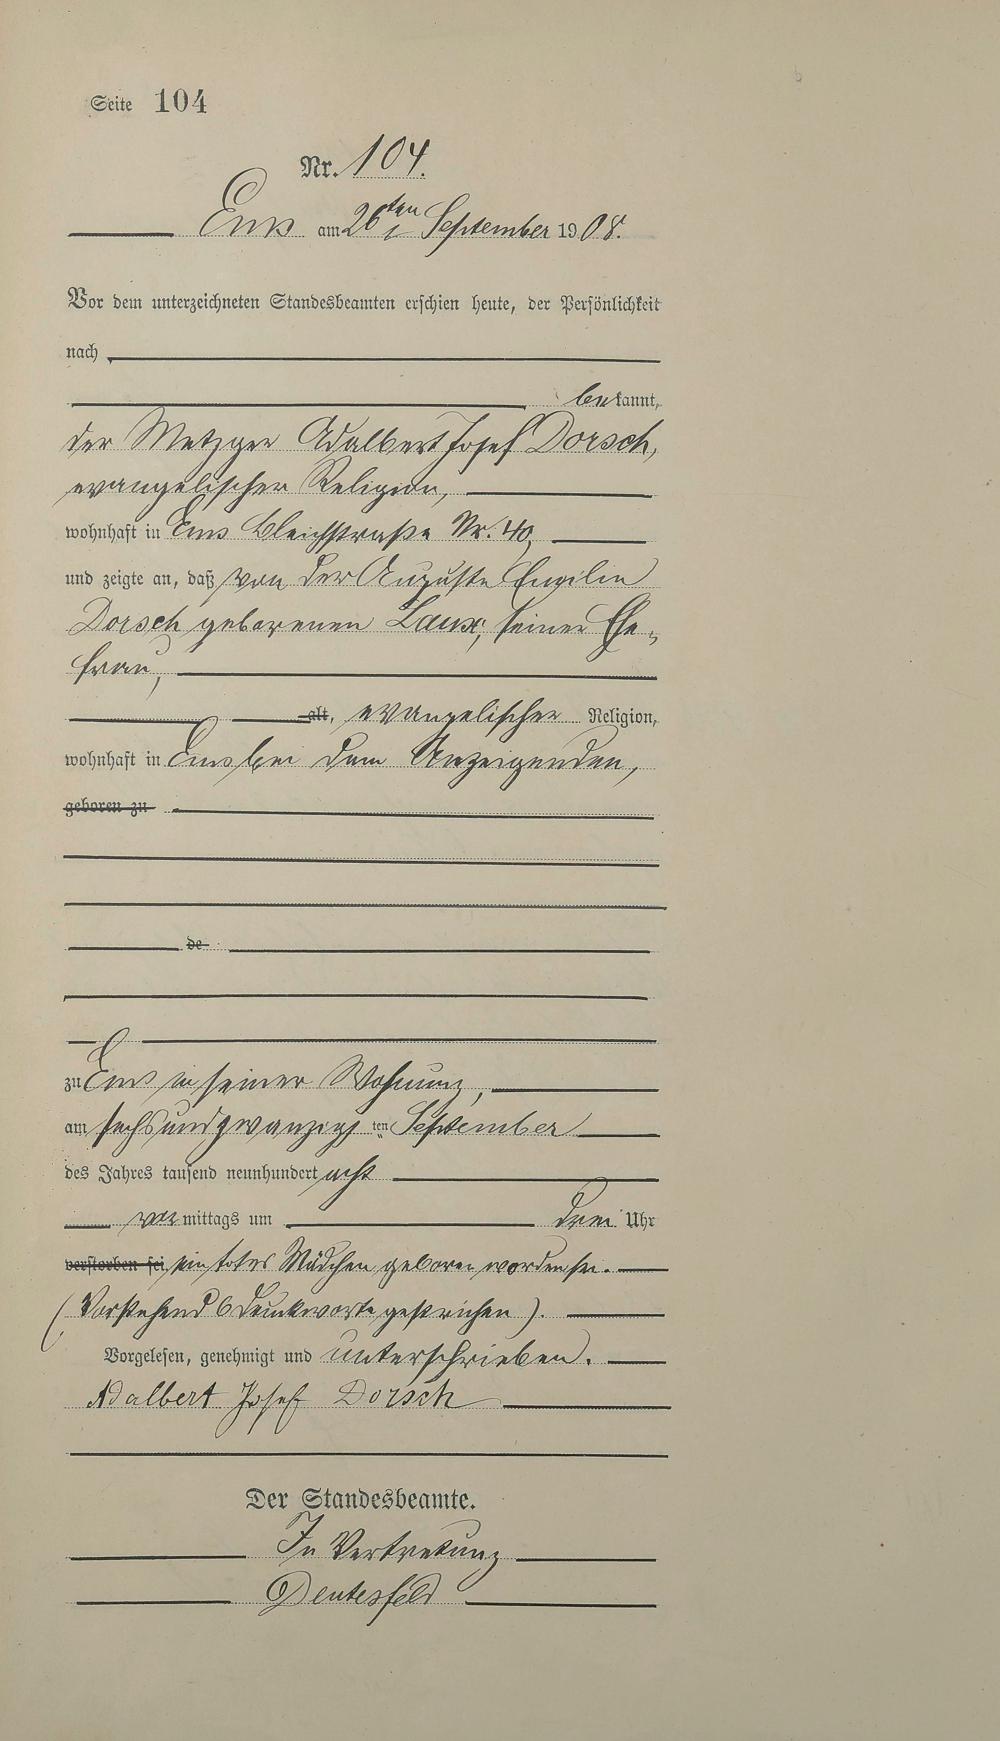 Seite 104
Nr. 104.
Ems am 26ten September 1908.
Vor dem unterzeichneten Standesbeamten erschien heute, der Persönlichkeit
nach
bekannt,
der Metzger Adalbert Josef Dorsch,
evangelischer Religion,
wohnhaft in Ems Bleichstraße Nr. 40,
und zeigte an, daß von der Auguste Emilie
Dorsch geborenen Laux, seiner Ehe-
frau,
alt, evangelischer Religion,
wohnhaft in Ems bei dem Anzeigenden,
geboren zu
de
zu Ems in seiner Wohnung,
am sechsundzwanzigsten September
des Jahres tausend neunhundert acht
vormittags um drei Uhr
verstorben sei ein totes Mädchen geboren worden sei.
(Vorstehend 6 Druckworte gestrichen).
Vorgelesen, genehmigt und unterschrieben.
Adalbert Josef Dorsch
Der Standesbeamte.
In Vertretung